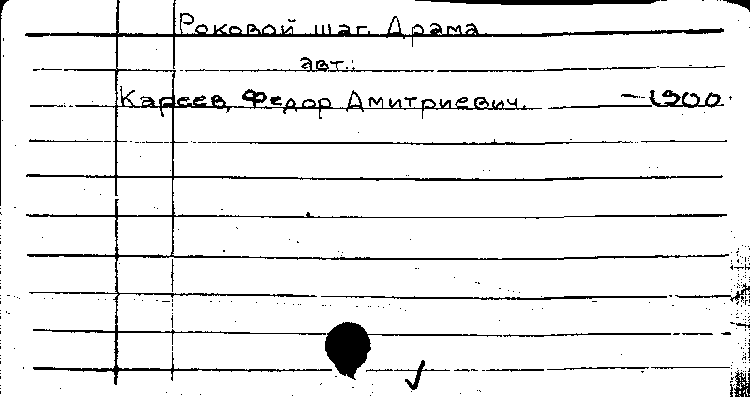 Роковой шаг. Драма.
авт.:
Кареев, Федор Дмитриевич. – 1900.